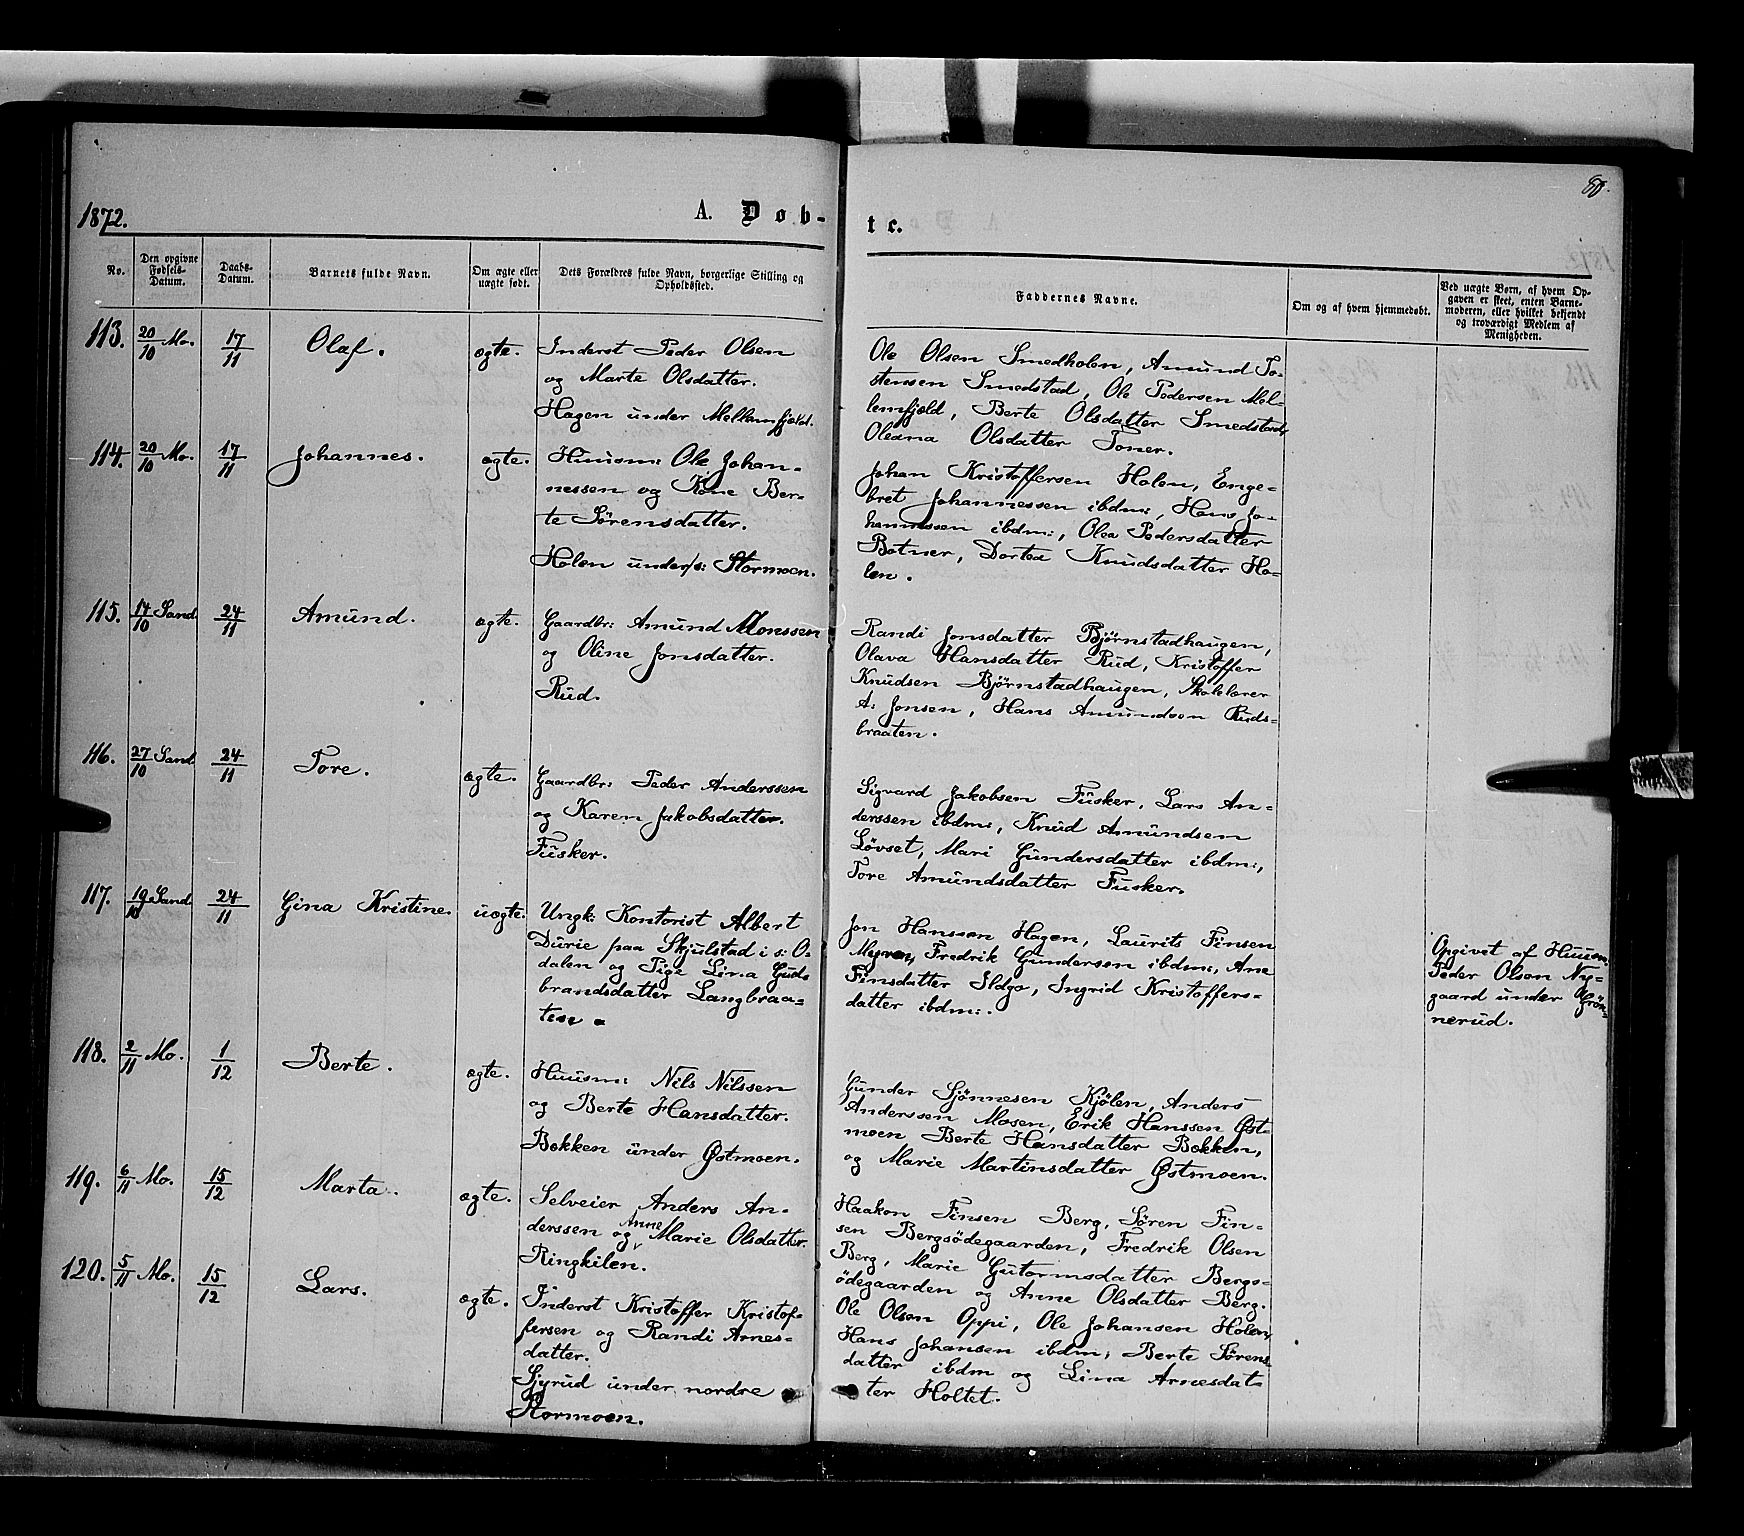 88.
1872.
A. Døb-
te.
No.
Den opgivne Fødsels-Datum.
Daabs-Datum.
Barnets fulde Navn.
Om ægte eller uægte født.
Dets Forældres fulde Navn, borgerlige Stilling og Opholdssted.
Faddernes Navne.
Om og af hvem hjemmedøbt.
Ved uægte Børn, af hvem Opgaven er skeet, enten Barnemoderen, eller hvilket bekjendt og troværdigt Medlem af Menigheden.
113. 20/10 Mo. 17/11 Olaf. ægte.
Inderst Peder Olsen
og Marte Olsdatter.
Hagen under Mellemfjeld.
Ole Olsen Smedholen, Amund To-
stensen Smedstad, Ole Pedersen Mel-
lemfjeld, Berte Olsdatter Smedstad,
Oleana Olsdatter Toner.
114. 20/10 Mo. 17/11 Johannes. ægte.
Huusm: Ole Johan-
nessen og Kone Ber-
te Sørensdatter.
Holen under s: Stormoen.
Johan Kristoffersen Holen, Enge-
bret Johannessen ibdm:, Hans Jo-
hannessen ibdm:, Olea Pedersdatter
Botner, Dortea Knudsdatter Ho-
len.
115. 14/10 Sand 24/11 Amund. ægte.
Gaardbr: Amund Monssen
og Oline Jonsdatter.
Rud.
Randi Jonsdatter Bjørnstadhaugen,
Olava Hansdatter Rud, Kristoffer
Knudsen Bjørnstadhaugen, Skolelærer
A: Jonsen, Hans Amundsen Ruds-
braaten.
116. 27/10 Sand 24/11 Tore. ægte.
Gaardbr: Peder Anderssen
og Karen Jakobsdatter.
Fusker.
Sigvard Jakobsen Fusker, Lars An-
derssen ibdm:, Knud Amundsen
Løvset, Mari Gundersdatter ibdm:,
Tore Amundsdatter Fusker.
117. 19/10 Sand 24/11 Gina Kristine. uægte.
Ungk: Kontorist Albert
Durie paa Skjulstad i s: O-
dalen og Pige Lina Gud-
brandsdatter Langbraa-
ten.
Jon Hanssen Hagen, Laurits Finsen
Myren, Fredrik Gundersen ibdm:, Ane
Finsdatter Ildgo, Ingrid Kristoffers-
datter ibdm:.
Opgivet af Huusm:
Peder Olsen Ny-
gaard under Grøn-
nerud.
118. 2/11 Mo. 1/12 Berte. ægte.
Huusm: Nils Nilssen
og Berte Hansdatter.
Bekken under Østmoen.
Gunder Sjønnesen Kjølen, Anders
Anderssen Mosen, Erik Hanssen Øst-
moen Berte Hansdatter Bekken,
og Marie Martinsdatter Østmoen.
119. 6/11 Mo. 15/12 Marta. ægte.
Selveier Anders An-
derssen og Anne Marie Olsdatter.
Ringkilen.
Haakon Finsen Berg, Søren Fin-
sen Bergsødegaarden, Fredrik Olsen
Berg, Marie Gutormsdatter Bergs-
ødegaarden og Anne Olsdatter Berg.
120. 5/11 Mo. 15/12 Lars. ægte.
Inderst Kristoffer Kristof-
fersen og Randi Arnes-
datter.
under nordre
Stormoen.
Ole Olsen Oppi, Ole Johansen Holen,
Hans Johansen ibdm, Berte Sørens-
datter ibdm og Lina Arnesdat-
ter Holtet.